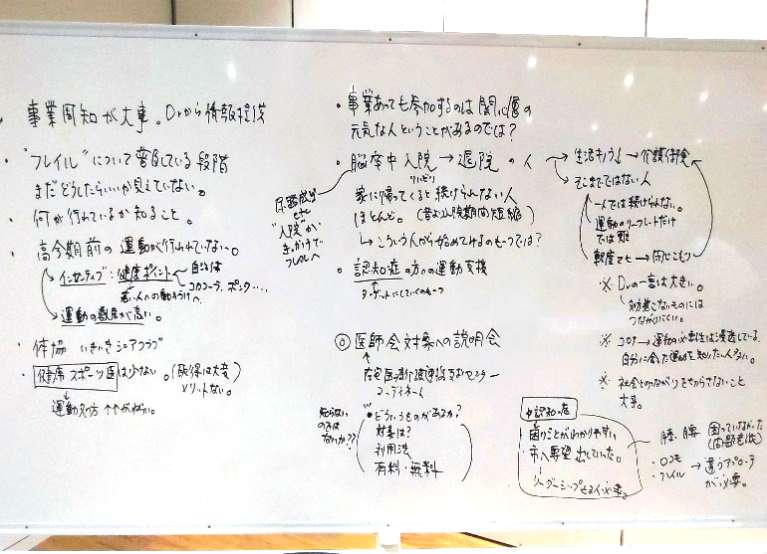 ・事業周知が大事。Drから情報提供
・"フレイル"について普及している段階
まだどうしたらいいか見えていない。
・何が行われているか知ること。
・高令期前の運動が行われていない。
インセンティブ：健康ポイント
自治体
コカコーラ、ポンタ・・・・
若い人への働きかけへ
運動の敷居が高い。
・体協 いきいきシニアクラブ
・健康スポーツ医は少ない。(取得は大変)
メリットない。
運動処方
・事業あっても参加するのは関心層の
元気な人ということがあるのでは？
・脳卒中入院→退院の人
リハビリ
家に帰ってくると続けられない人
ほとんど。(昔より入院期間短縮)
↳こういう人から
のも一つでは？
尿路感染
etc
"入院"が
きっかけで
フレイルへ
・認知症の方への運動支援
ターゲットにしていくのも一つ
◎医師会対象への説明会
在宅医療介護連携支援センター
コーディネート
知らない
のでは
ないか？？
・どういうものがあるか？
対象は？
利用法
有料・無料
生活もう↓→介護保険
そこまでではない人
一人では続けられない。
運動のリーフレットだけ
では難
軽度でも→閉じこもり
※Drの一言は大きい。
効果
ないものには
つながりにくい。
※コロナ→運動の必要性は浸透している。
自分に合った運動を知りたい人多い。
※社会とのつながりをたやさないこと
大事。
認知症
困りごとがわかりやすい。
市へ要望出していった。
リーダーシップとる人必要。
膝、腰 困っていなかった
・ロコモ
・フレイル→違うアプローチ
が必要。